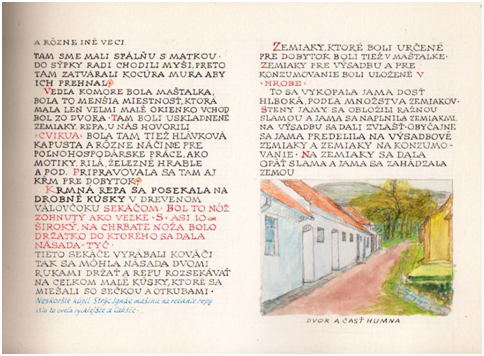 A RÔZNE INÉ VECI.
TAM SME MALI SPÁLŇU S MATKOU.
DO SÝPKY RADI CHODILI MYŠI, PRETO
TAM ZATVÁRALI KOCÚRA MURA ABY
ICH PREHNAL.
VEDĽA KOMORE BOLA MAŠTALKA,
BOLA TO MENŠIA MIESTNOSŤ, KTORÁ
MALA LEN VEĽMI MALÉ OKIENKO VCHOD
BOL ZO DVORA. TAM BOLI USKLADNENÉ
ZEMIAKY, REPA, U NÁS HOVORILI
"CVIKLA". BOLA TAM TIEŽ HLÁVKOVÁ
KAPUSTA A RÔZNE NÁČINIE PRE
POĽNOHOSPODÁRSKE PRÁCE, AKO
MOTIKY, RÍLA, ŽELEZNÉ HRABLE
A POD. PRIPRAVOVALA SA TAM AJ
KŔM PRE DOBYTOK.
KŔMNA REPA SA POSEKALA NA
DROBNÉ KÚSKY V DREVENOM
VÁLOVČOKU SEKÁČOM. BOL TO NÔŽ
ZOHNUTÝ AKO VEĽKÉ "S" ASI 10 cm
ŠIROKÝ, NA CHRBÁTE NOŽA BOLO
DRŽÁTKO DO KTORÉHO SA DALA
NÁSADA - TYČ.
TIETO SEKÁČE VYRÁBALI KOVÁČI
TAK SA MOHLA NÁSADA DVOMI
RUKAMI DRŽAŤ A REPU ROZSEKÁVAŤ
NA CELKOM MALÉ KÚSKY, KTORÉ SA
MIEŠALI SO SEČKOU A OTRUBAMI.
Neskoršie kúpil Strýc Ignác mašinu na rezanie repy
išlo to oveľa rýchlejšie a ľahšie.
ZEMIAKY, KTORÉ BOLI URČENÉ
PRE DOBYTOK BOLI TIEŽ V MAŠTALKE.
ZEMIAKY PRE VÝSADBU A PRE
KONZUMOVANIE BOLI ULOŽENÉ V
"HROBE".
TO SA VYKOPALA JAMA DOSŤ
HLBOKÁ, PODĽA MNOŽSTVA ZEMIAKOV.
STENY JAMY SA OBLOŽILI RAŽNOU
SLAMOU A JAMA SA NAPLNILA ZEMIAKMI.
NA VÝSADBU SA DALI ZVLÁŠŤ-OBYČAJNE
SA JAMA PREDELILA NA VÝSADBOVÉ
ZEMIAKY A ZEMIAKY NA KONZUMO-
VANIE. NA ZEMIAKY SA DALA
OPÄŤ SLAMA A JAMA SA ZAHÁDZALA
ZEMOU
DVOR A ČASŤ HUMNA